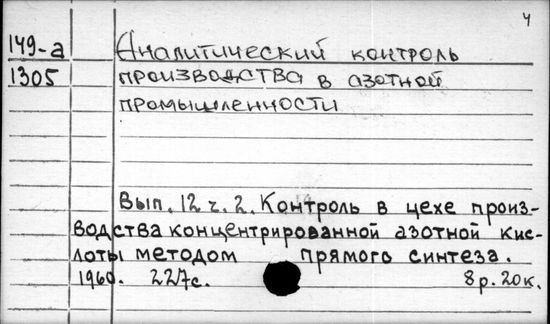 4
149-а Аналитический контроль
1305 производства в азотной
промышленности
Вып. 12 ч. 2. Контроль в цехе произ-
водства концентрированной азотной кис-
лоты методом прямого синтеза.
1960. 227с. 8р. 20к.